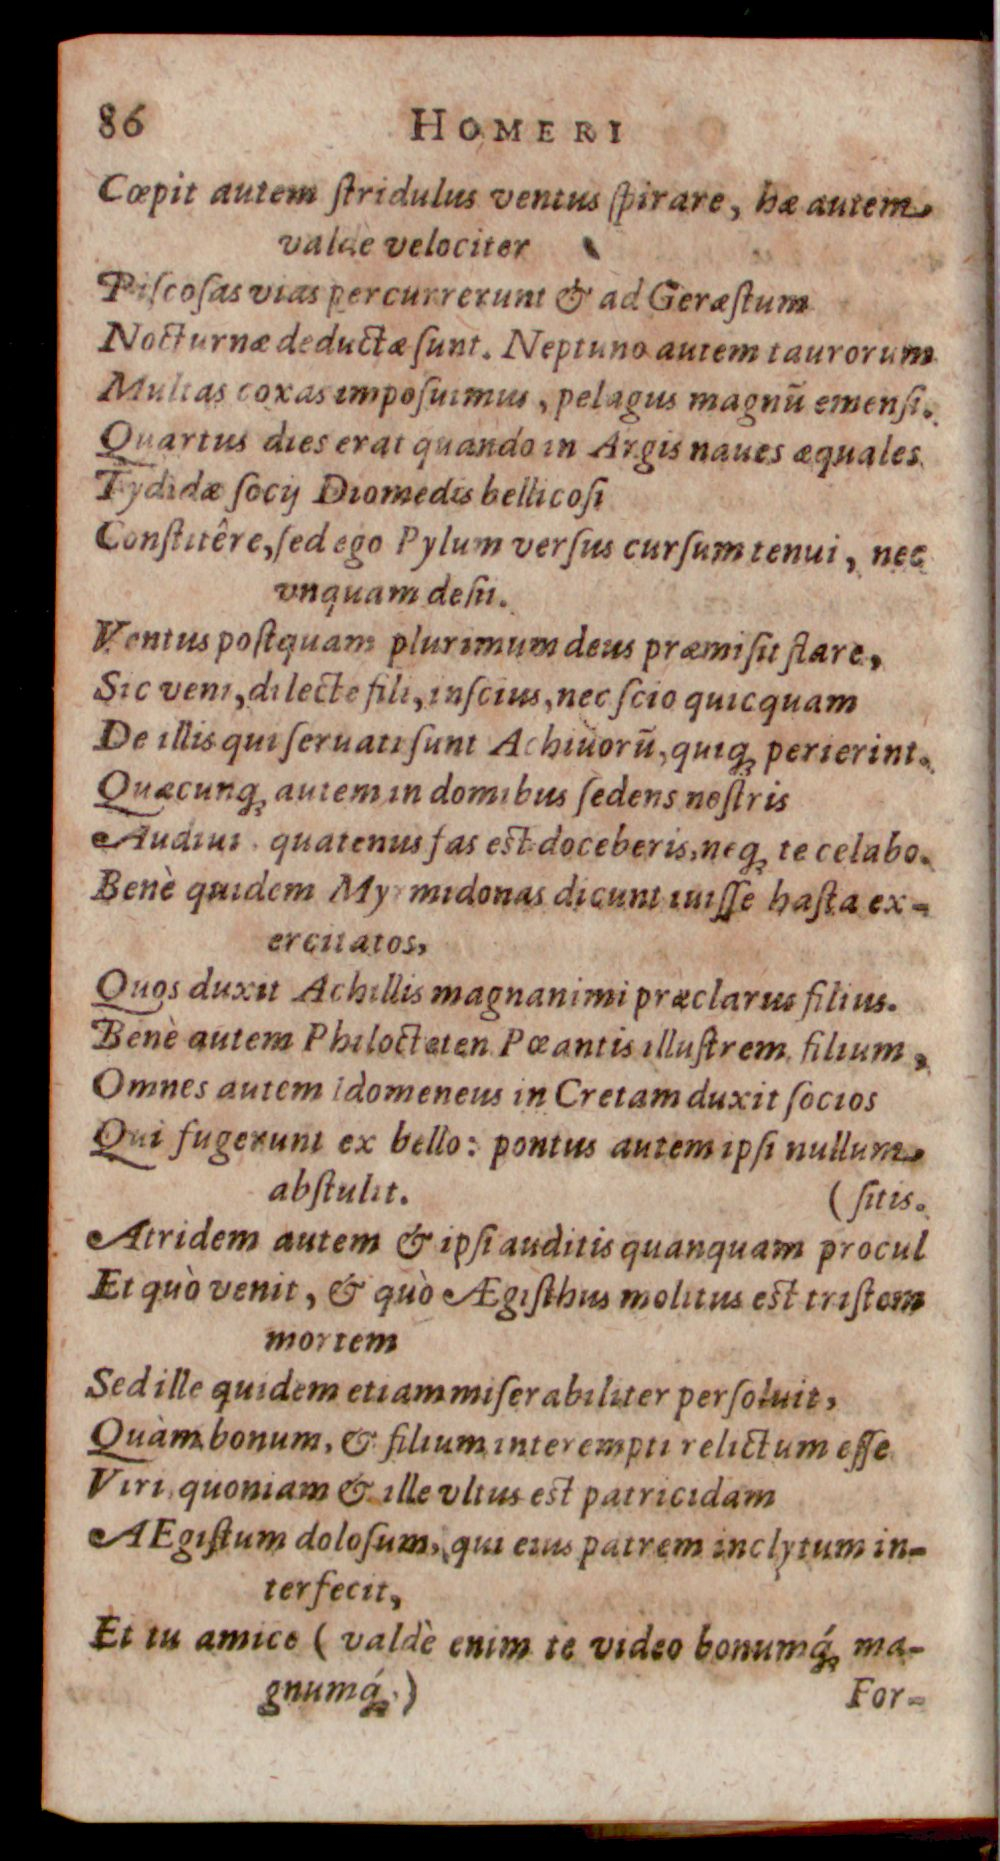 86 HOMERI
Cœpit autem ſtridulus ventus ſpirare, hæ autem
valdè velociter
Piſcoſas vias percurrerunt & ad Geræſtum
Nocturnæ deductæ ſunt. Neptuno autem taurorum
Multas coxas impoſuimus, pelagus magnū emenſi.
Quartus dies erat quando in Argis naues æquales
Tydidæ ſocij Diomedis bellicoſi
Conſtitêre, ſed ego Pylum verſus curſum tenui, nec
vnquam deſii.
Ventus poſtquam plurimum deus præmiſit flare,
Sic veni, dilecte fili, inſcius, nec ſcio quicquam
De illis qui ſeruati ſunt Achiuorū, quiq; perierint.
Quæcunq; autem in domibus ſedens noſtris
Audiui quatenus fas eſt doceberis, neq; te celabo.
Benè quidem Myrmidonas dicunt iuiſſe haſta ex-
ercitatos,
Quos duxit Achillis magnanimi præclarus filius.
Benè autem Philocteten Pœantis illuſtrem filium,
Omnes autem Idomeneus in Cretam duxit ſocios
Qui fugerunt ex bello: pontus autem ipſi nullum
abſtulit. (ſitis.
Atridem autem & ipſi auditis quanquam procul
Et quò venit, & quò Ægiſthus molitus eſt triſtem
mortem
Sed ille quidem etiam miſerabiliter perſoluit,
Quàm bonum, & filium interempti relictum eſſe
Viri, quoniam & ille vltus eſt patricidam
AEgiſtum doloſum, qui eius patrem inclytum in-
terfecit,
Et tu amice (valdè enim te video bonumq́; ma-
gnumq́;) For-